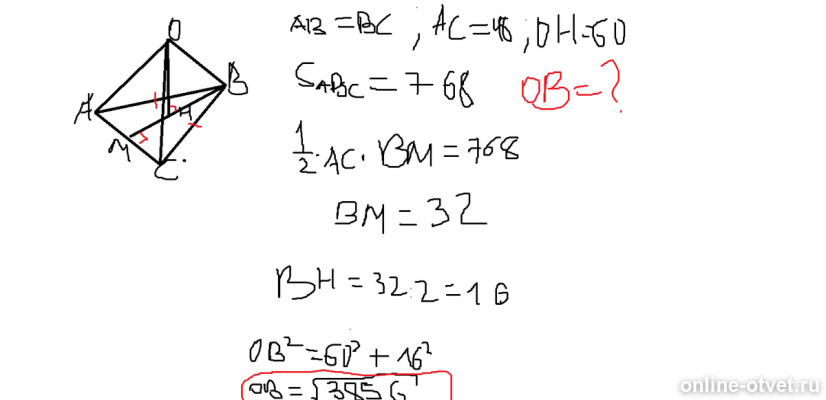 O
B
A
H
M
C
AB = BC ; AC = 48 ; OH = 60
S ABC = 768 OB = ?
1/2 · AC · BM = 768
BM = 32
BH = 32 : 2 = 16
OB² = 60² + 16²
OB = √3856
online-otvet.ru